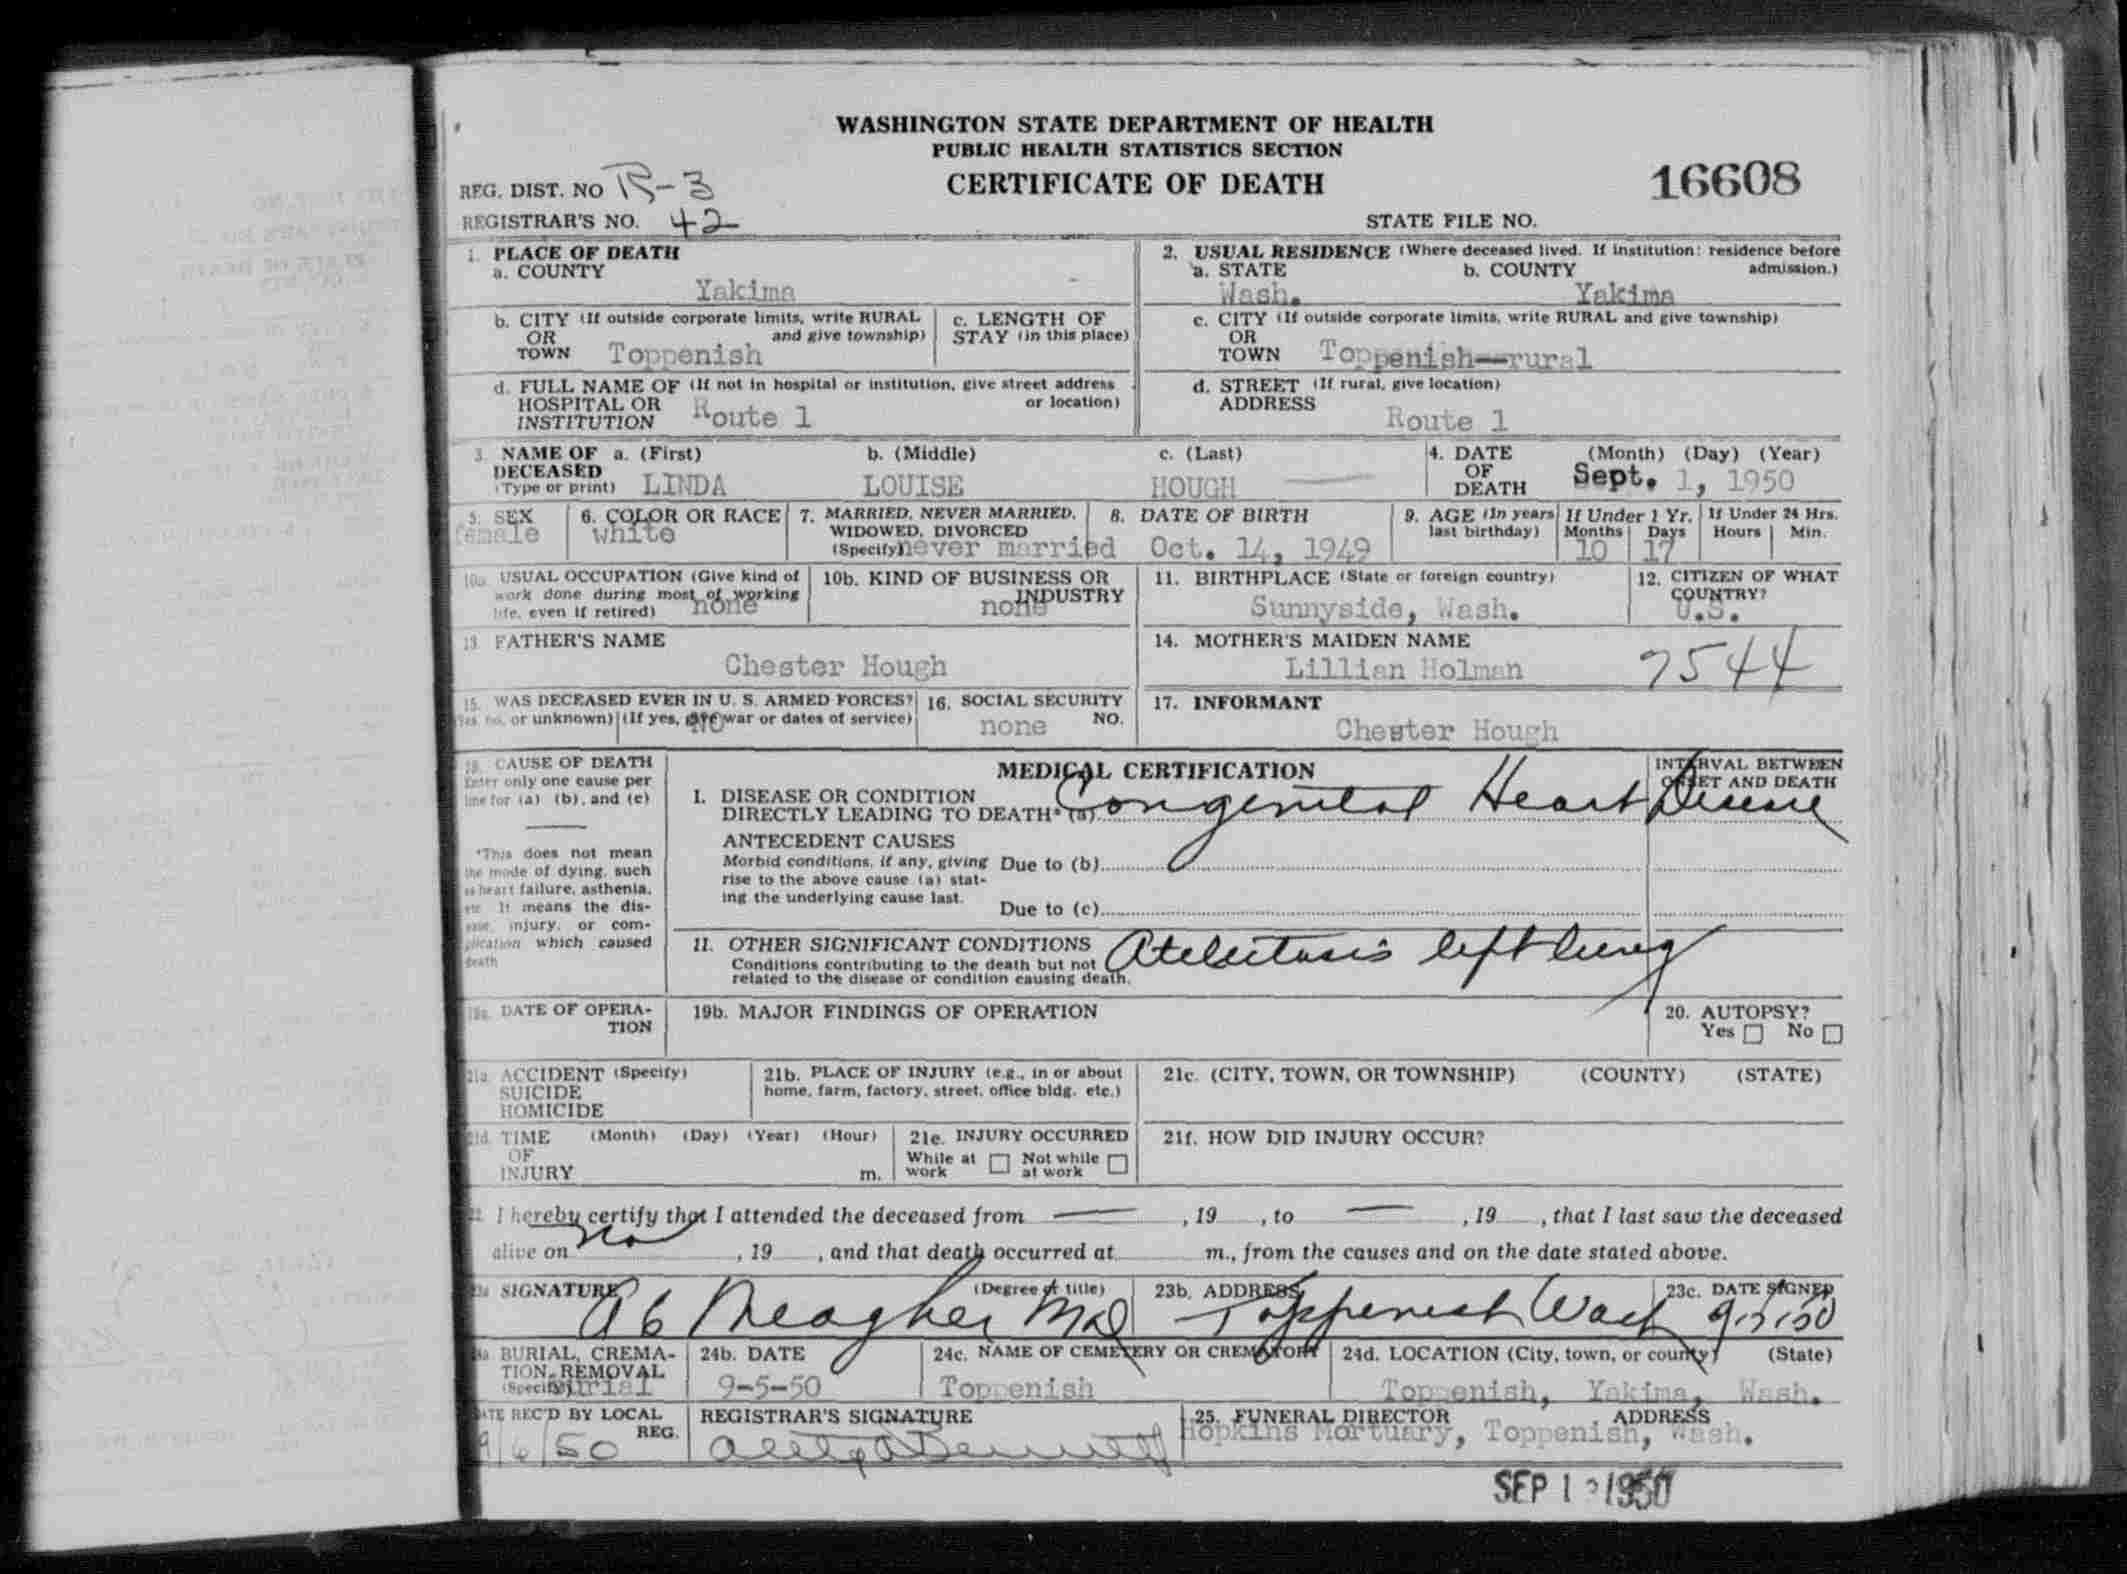 WASHINGTON STATE DEPARTMENT OF HEALTH
PUBLIC HEALTH STATISTICS SECTION
CERTIFICATE OF DEATH
16608
REG. DIST. NO R-3
REGISTRAR'S NO. 42
STATE FILE NO.
1. PLACE OF DEATH
a. COUNTY
Yakima
2. USUAL RESIDENCE (Where deceased lived. If institution: residence before admission.)
a. STATE b. COUNTY
Wash. Yakima
b. CITY (If outside corporate limits, write RURAL
OR and give township)
TOWN Toppenish
c. LENGTH OF
STAY (in this place)
c. CITY (If outside corporate limits, write RURAL and give township)
OR
TOWN Toppenish--rural
d. FULL NAME OF (If not in hospital or institution, give street address
HOSPITAL OR or location)
INSTITUTION Route 1
d. STREET (If rural, give location)
ADDRESS
Route 1
3. NAME OF a. (First) b. (Middle) c. (Last)
DECEASED
(Type or print) LINDA LOUISE HOUGH
4. DATE (Month) (Day) (Year)
OF
DEATH Sept. 1, 1950
5. SEX
female
6. COLOR OR RACE
white
7. MARRIED, NEVER MARRIED,
WIDOWED, DIVORCED
(Specify) never married
8. DATE OF BIRTH
Oct. 14, 1949
9. AGE (In years
last birthday)
If Under 1 Yr.
Months Days
10 17
If Under 24 Hrs.
Hours Min.
10a. USUAL OCCUPATION (Give kind of
work done during most of working
life, even if retired) none
10b. KIND OF BUSINESS OR
INDUSTRY
none
11. BIRTHPLACE (State or foreign country)
Sunnyside, Wash.
12. CITIZEN OF WHAT
COUNTRY?
U.S.
13. FATHER'S NAME
Chester Hough
14. MOTHER'S MAIDEN NAME
Lillian Holman
7544
15. WAS DECEASED EVER IN U. S. ARMED FORCES?
(Yes, no, or unknown) (If yes, give war or dates of service)
no
16. SOCIAL SECURITY
NO.
none
17. INFORMANT
Chester Hough
18. CAUSE OF DEATH
Enter only one cause per
line for (a) (b), and (c)
*This does not mean
the mode of dying, such
as heart failure, asthenia,
etc. It means the dis-
ease, injury, or com-
plication which caused
death
MEDICAL CERTIFICATION
INTERVAL BETWEEN
ONSET AND DEATH
I. DISEASE OR CONDITION
DIRECTLY LEADING TO DEATH* (a) Congenital Heart Disease
ANTECEDENT CAUSES
Morbid conditions, if any, giving
rise to the above cause (a) stat-
ing the underlying cause last.
Due to (b)
Due to (c)
II. OTHER SIGNIFICANT CONDITIONS
Conditions contributing to the death but not
related to the disease or condition causing death.
Atelectasis left lung
19a. DATE OF OPERA-
TION
19b. MAJOR FINDINGS OF OPERATION
20. AUTOPSY?
Yes No
21a. ACCIDENT (Specify)
SUICIDE
HOMICIDE
21b. PLACE OF INJURY (e.g., in or about
home, farm, factory, street, office bldg. etc.)
21c. (CITY, TOWN, OR TOWNSHIP) (COUNTY) (STATE)
21d. TIME (Month) (Day) (Year) (Hour)
OF
INJURY m.
21e. INJURY OCCURRED
While at Not while
work at work
21f. HOW DID INJURY OCCUR?
22. I hereby certify that I attended the deceased from — , 19 , to — , 19 , that I last saw the deceased
alive on , 19 , and that death occurred at m., from the causes and on the date stated above.
23a SIGNATURE (Degree or title)
Meagher MD
23b. ADDRESS
Toppenish Wash
23c. DATE SIGNED
24a. BURIAL, CREMA-
TION, REMOVAL
(Specify) burial
24b. DATE
9-5-50
24c. NAME OF CEMETERY OR CREMATORY
Toppenish
24d. LOCATION (City, town, or county) (State)
Toppenish, Yakima, Wash.
DATE REC'D BY LOCAL
REG.
9/6/50
REGISTRAR'S SIGNATURE
25. FUNERAL DIRECTOR ADDRESS
Hopkins Mortuary, Toppenish, Wash.